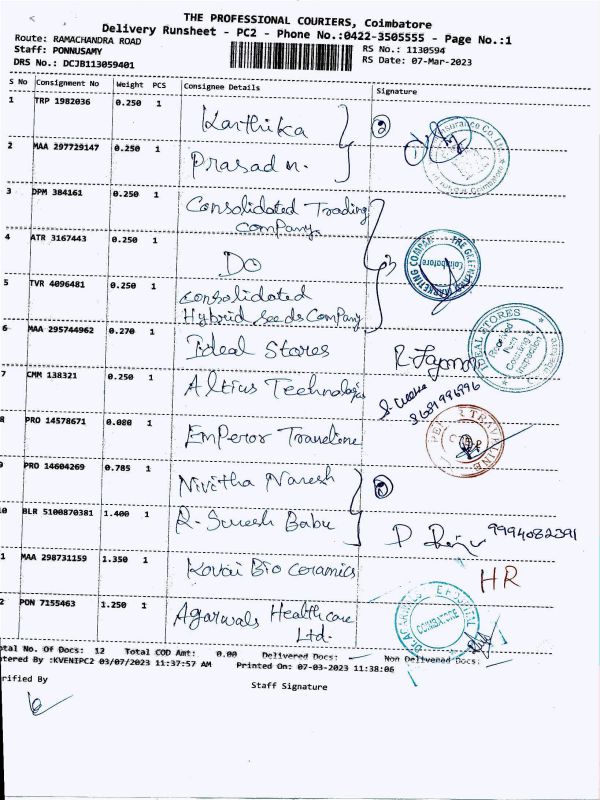 THE PROFESSIONAL COURIERS, Coimbatore
Delivery Runsheet - PC2 - Phone No.:0422-3505555 - Page No.:1
Route: RAMACHANDRA ROAD
RS No.: 1130594
Staff: PONNUSAMY
RS Date: 07-Mar-2023
DRS No.: DCJB113059401
S No Consignment No Weight PCS Consignee Details Signature
1 TRP 1982036 0.250 1 Karthika 2
2 MAA 297729147 0.250 1 Prasad n. 1
Insurance Co. Ltd.
Coimbatore
3 DPM 384161 0.250 1 Consolidated Trading
Company.
4 ATR 3167443 0.250 1 DO 3
MARKETING COMPANY
Coimbatore
5 TVR 4096481 0.250 1 Consolidated
Hybrid Seeds Company
6 MAA 295744962 0.270 1 Ideal Stores
IDEAL STORES
Received
Non
Counting &
Inspection
7 CMM 138321 0.250 1 Altius Technologies
8 PRO 14578671 0.080 1 Emperor Traveline
TRAVELINE
9 PRO 14604269 0.785 1 Nivitha Naresh 2
10 BLR 5100870381 1.400 1 R. Suresh Babu
9994082391
1 MAA 298731159 1.350 1 Kovai Bio Ceramics HR
2 PON 7155463 1.250 1 Agarwals Healthcare
Ltd.
DR. AGARWALS EYE HOSPITAL
COIMBATORE
otal No. Of Docs: 12 Total COD Amt: 0.00 Delivered Docs: Non Delivered Docs:
ntered By :KVENIPC2 03/07/2023 11:37:57 AM Printed On: 07-03-2023 11:38:06
rified By
Staff Signature